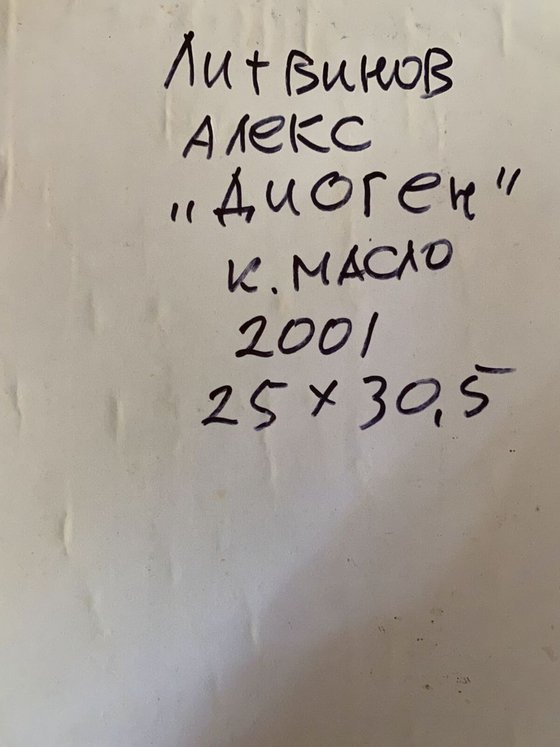 Литвинов
Алекс
„Диоген"
К. Масло
2001
25 × 30,5